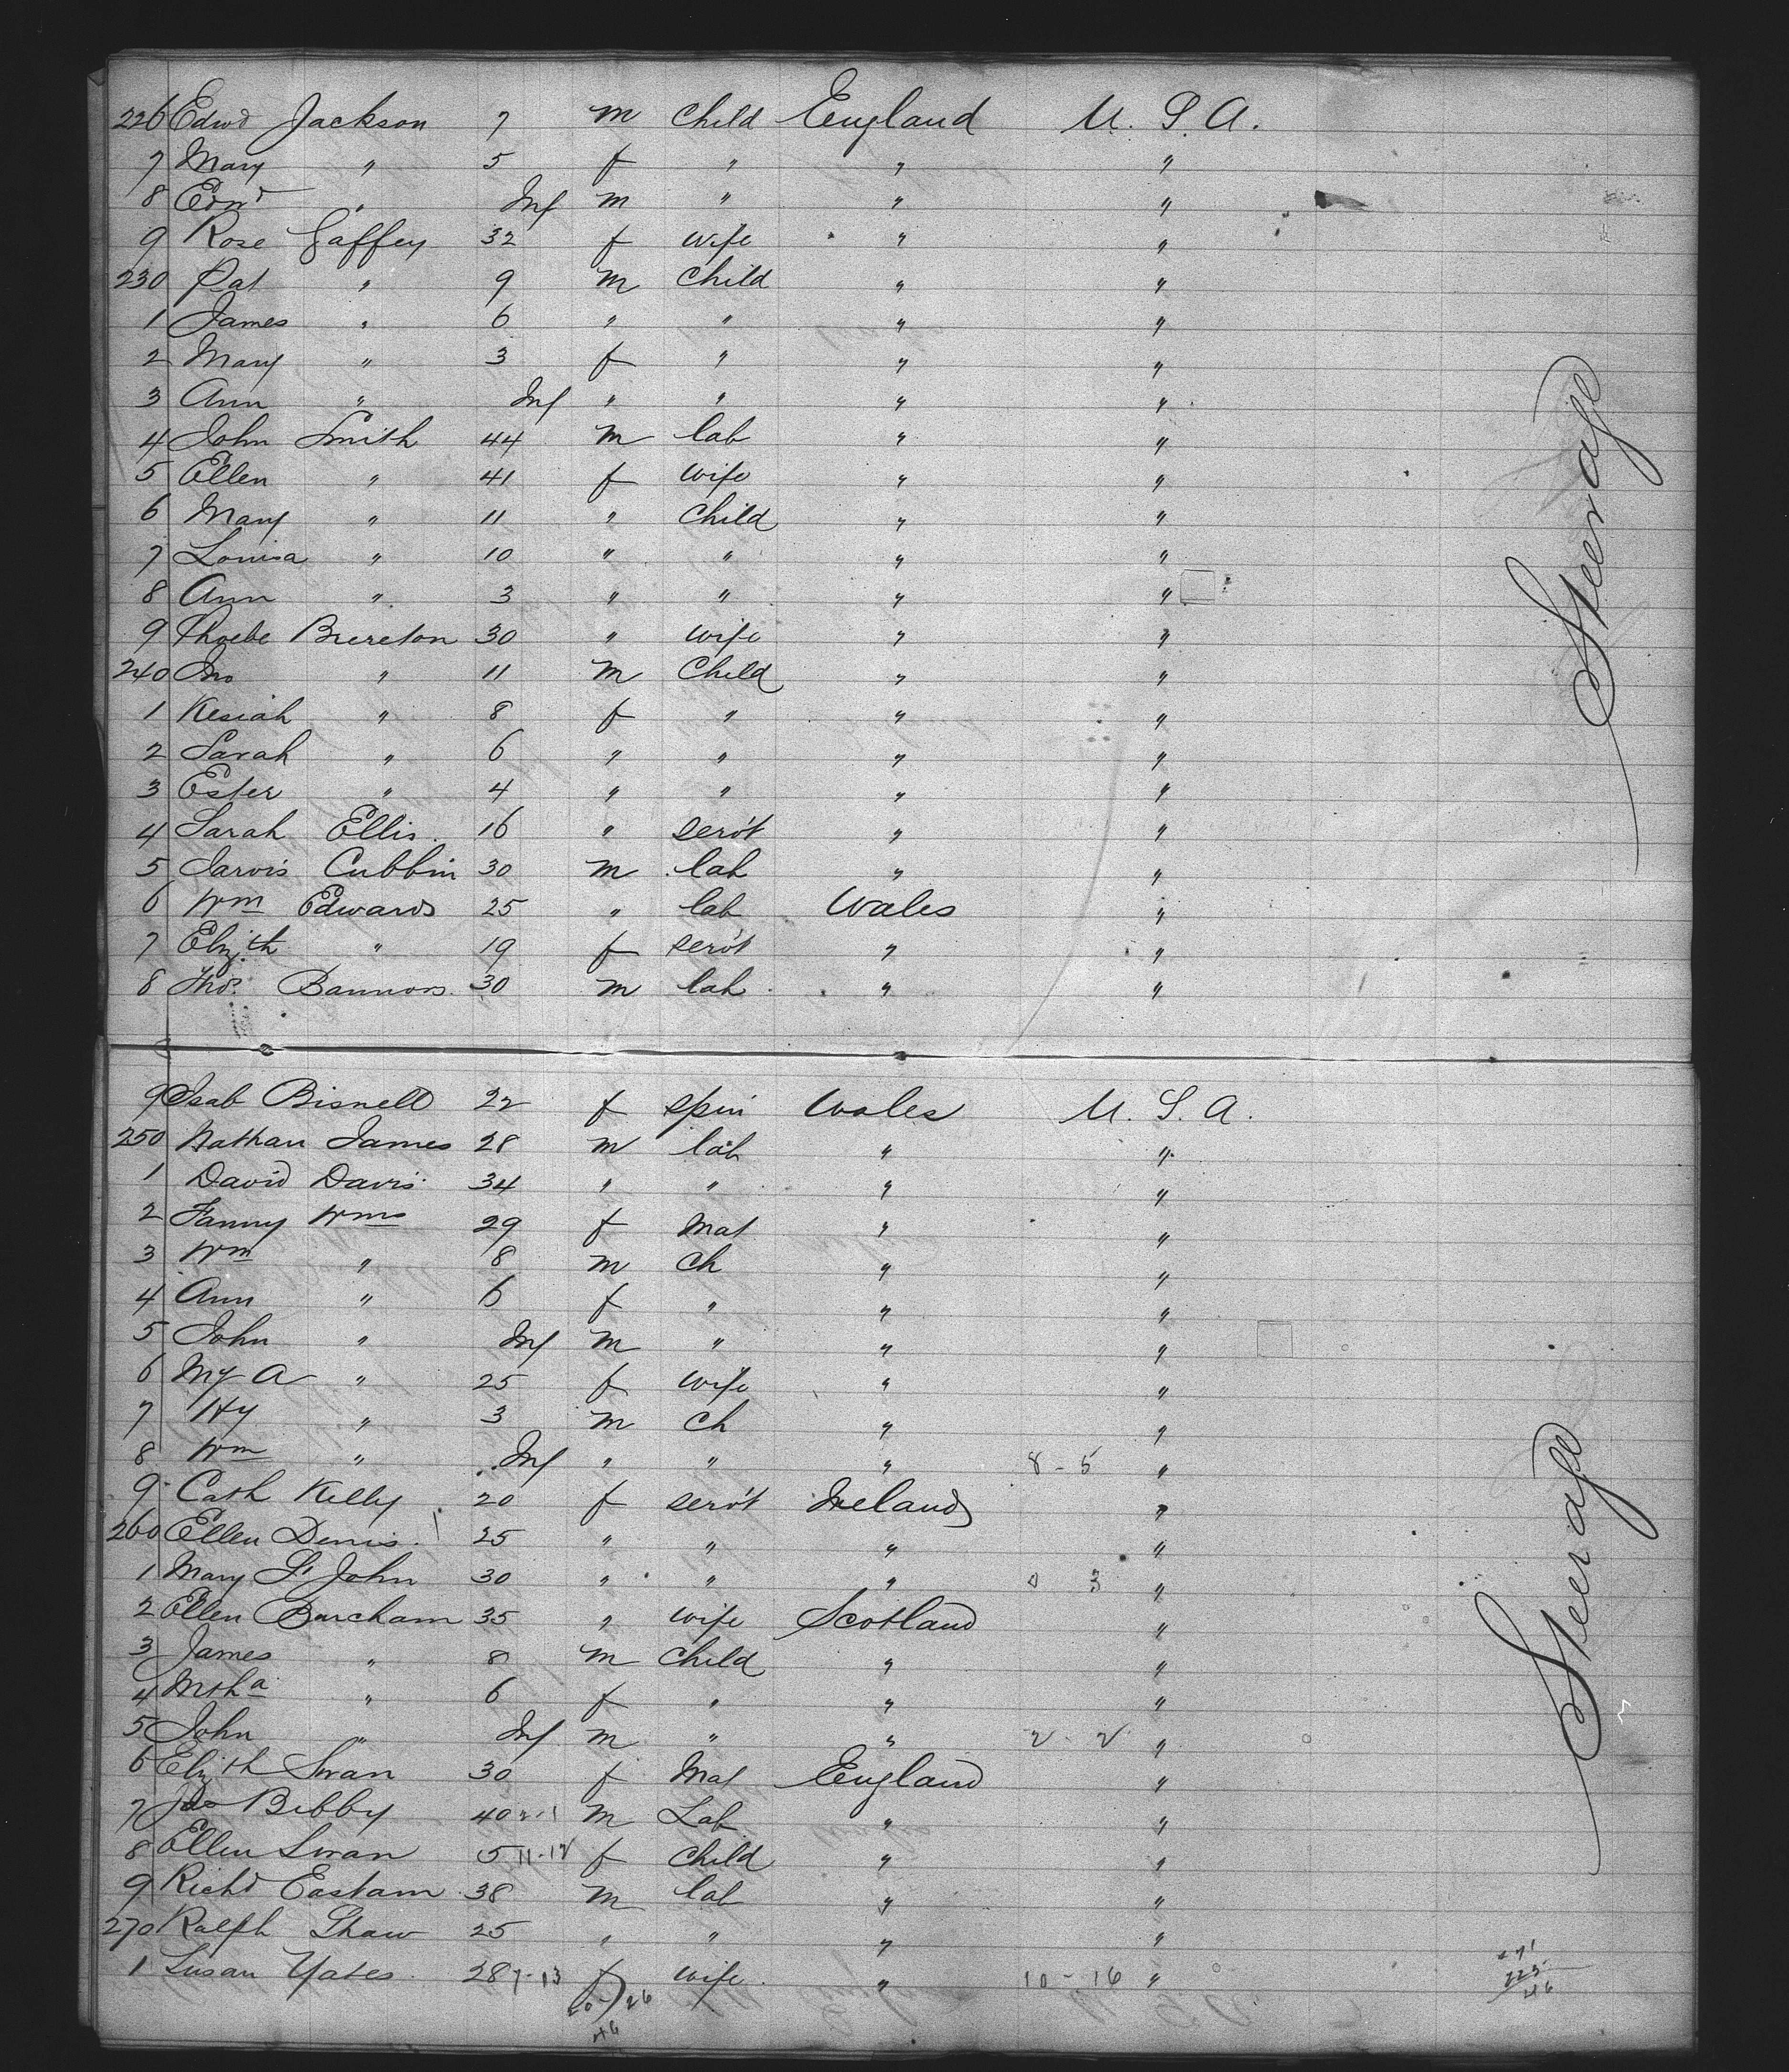 226 Edwd Jackson 7 m Child England U. S. A.
7 Mary " 5 f " " "
8 Edwd " Inf m " " "
9 Rose Gaffey 32 f wife " "
230 Pat " 9 m Child " "
1 James " 6 " " " "
2 Mary " 3 f " " "
3 Ann " Inf " " " "
4 John Smith 44 m lab " "
5 Ellen " 41 f wife " "
6 Mary " 11 " Child " "
7 Louisa " 10 " " " "
8 Ann " 3 " " " "
9 Phoebe Brereton 30 " wife " "
240 Jno " 11 m Child " "
1 Kesiah " 8 f " " "
2 Sarah " 6 " " " "
3 Ester " 4 " " " "
4 Sarah Ellis 16 " serv't " "
5 Jarvis Cubbin 30 m lab " "
6 Wm Edwards 25 " lab Wales "
7 Elizth " 19 f serv't " "
8 Thos. Bannors 30 m lab " "
Steerage
9 Isab Bisnell 22 f spin Wales U. S. A.
250 Nathan James 28 m lab " "
1 David Davis 34 " " " "
2 Fanny Wms 29 f Mat " "
3 Wm " 8 m ch " "
4 Ann " 6 f " " "
5 John " Inf m " " "
6 My A " 25 f wife " "
7 Hy " 3 m ch " "
8 Wm " Inf " " " 8-5 "
9 Cath Kelly 20 f serv't Ireland "
260 Ellen Denis 25 " " " "
1 Mary St John 30 " " " 0 3 "
2 Ellen Barcham 35 " wife Scotland "
3 James " 8 m Child " "
4 Mtha " 6 f " " "
5 John " Inf m " " 2-2 "
6 Elizth Swan 30 f Mat England "
7 Bibby 40 2-1 m Lab " "
8 Ellen Swan 5 11-12 f Child " "
9 Richd Eastam 38 m lab " "
270 Ralph Shaw 25 " " " "
1 Susan Yates 28 7-13 f wife " 10-16 "
20 / 26
46
Steerage
271
225
46